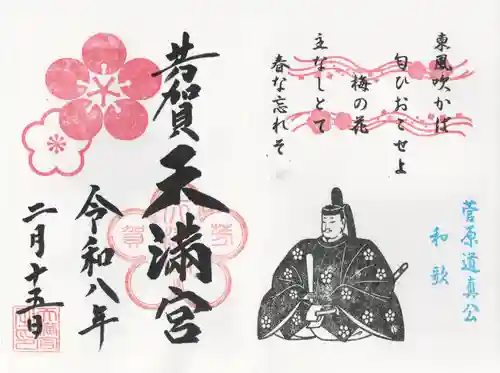 東風吹かは
匂ひおこせよ
梅の花
主なしとて
春な忘れそ
菅原道真公
和歌
芳賀天満宮
令和八年
二月十五日